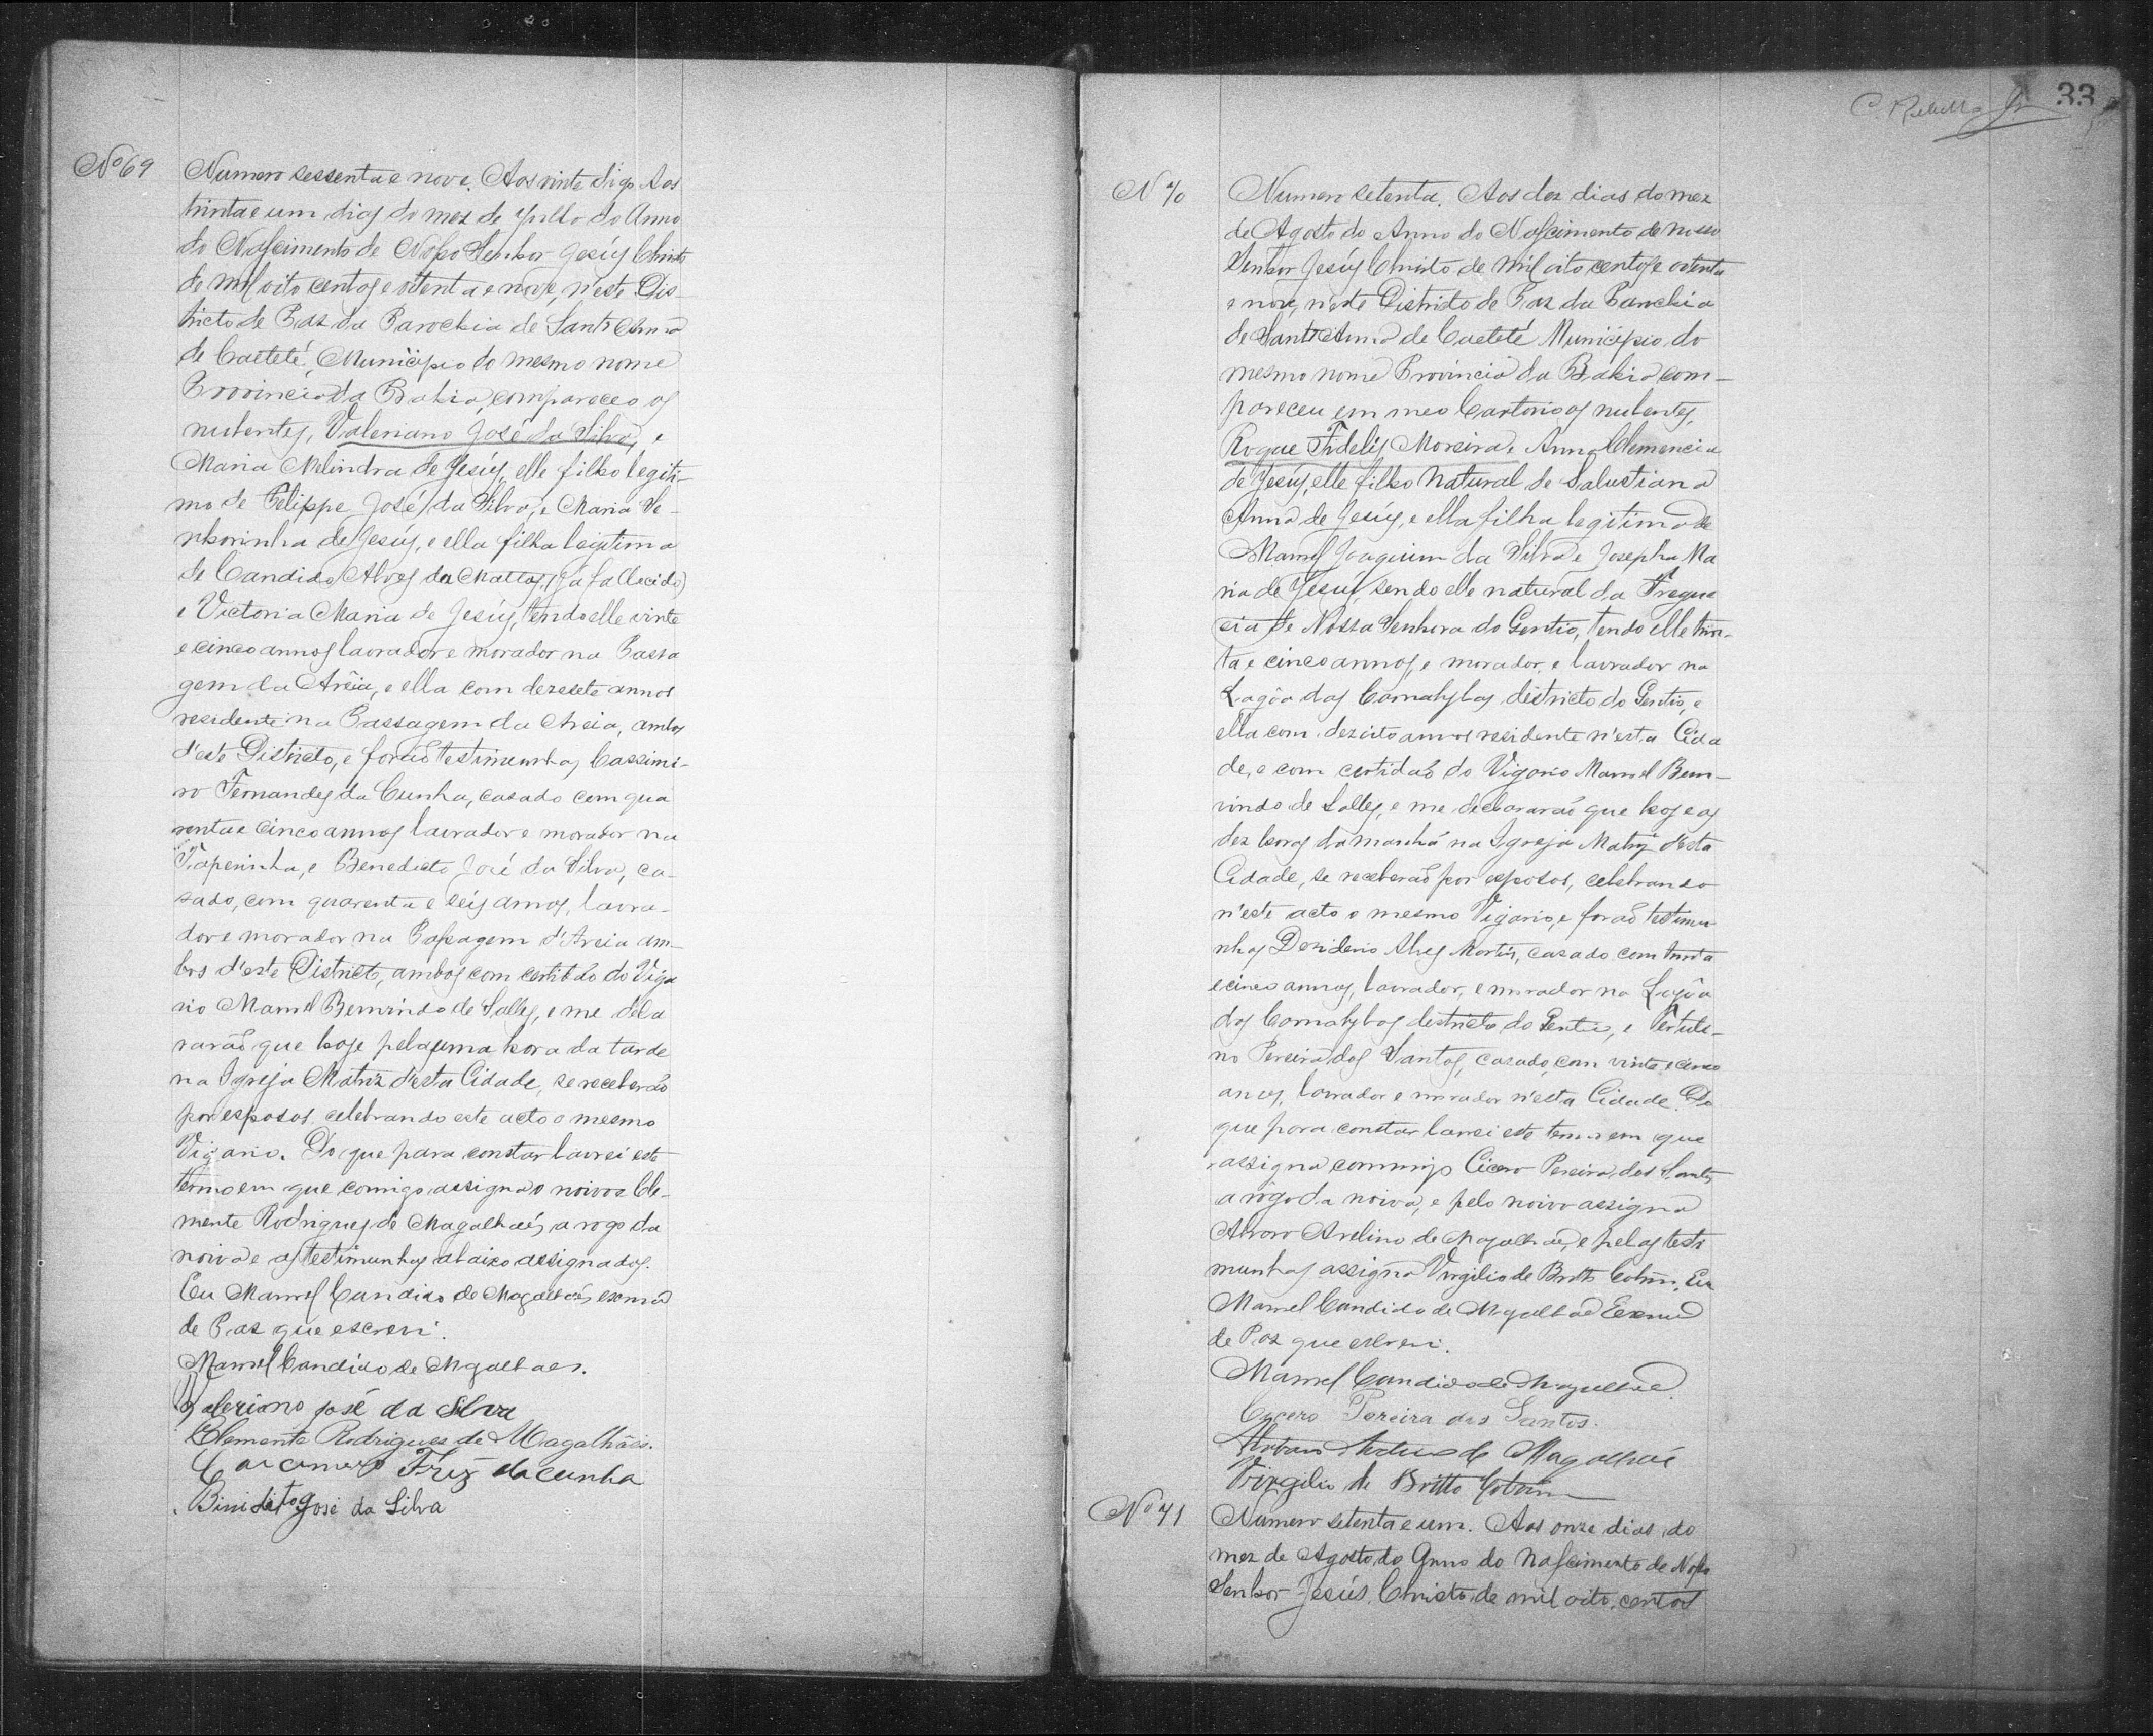 Nº 69
Numero sessenta e nove. Aos vinte digo Aos
trinta e um dias do mez de Julho do Anno
do Nascimento de Nosso Senhor Jesús Christo
de mil oito centos e oitenta e nove, n'este Dis-
tricto de Paz da Parochia de Sant'Anna
de Caeteté, Municipio do mesmo nome
Provincia da Bahia, compareceo os
nubentes, Valeriano José da Silva, e
Maria Melindra de Jesús, elle filho legiti-
mo de Felippe José da Silva, e Maria Se-
nhorinha de Jesús, e ella filha legitima
de Candido Alves da Mattos, (já fallecido)
e Victoria Maria de Jesús, tendo elle vinte
e cinco annos lavrador e morador na Passa
gem da Arêia, e ella com dezesete annos
residente na Passagem da Areia, ambos
d'este Districto, e forão testimunhas Cassimi-
ro Fernandes da Cunha, casado com qua
renta e cinco annos lavrador e morador na
Taperinha, e Benedicto José da Silva, ca-
sado, com quarenta e seis annos, lavra-
dor e morador na Passagem d'Areia am-
bos d'este Districto, ambos com certidão do Viga
rio Manoel Bemvindo de Salles, e me decla
rarão que hoje pela uma hora da tarde
na Igreja Matriz d'esta Cidade, se receberão
por esposos celebrando este acto o mesmo
Vigario. Do que para constar lavrei este
termo em que comigo assigna o noivo e Cle-
mente Rodrigues de Magalhães, a rogo da
noiva e as testimunhas abaixo assignados.
Eu Manoel Candido de Magalhães escrivão
de Paz que escrevi.
Manoel Candido de Magalhaes.
Valeriano josé da Silva
Clemente Rodrigues de Magalhães.
Cacemero Frz da Cunha
Binidito José da Silva
33
Nº 70
Numero setenta. Aos dez dias do mez
de Agosto do Anno do Nascimento de nosso
Senhor Jesús Christo de mil oito centos e oitenta
e nove, n'este Districto de Paz da Parochia
de Sant'Anna de Caeteté Municipio do
mesmo nome Provincia da Bahia, com-
pareceu em meo Cartorio os nubentes,
Roque Fidelis Moreira e Anna Clemencia
de Jesús, elle filho natural de Salustiana
Anna de Jesús, e ella filha legitima de
Manoel Joaquim da Silva e Josepha Ma
ria de Jesús, sendo elle natural da Fregue
cia de Nossa Senhora do Gentio, tendo elle trin-
ta e cinco annos, e morador e lavrador na
Lagôa das districto do Gentio, e
ella com dezoito annos residente n'esta Cida
de, e com certidão do Vigario Manoel Bem-
vindo de Salles, e me declararão que hoje as
dez horas da manhã na Igreja Matriz d'esta
Cidade, se receberão por esposos, celebrando
n'este acto o mesmo Vigario, e forão testemu
nhas Deziderio Alves Martins, casado com trinta
e cinco annos, lavrador, e morador na Lagôa
das districto do Gentio, e Tertuli-
no Pereira dos Santos, casado, com vinte e cinco
annos, lavrador e morador n'esta Cidade. Do
que para constar lavrei este termo em que
assigna commigo Cicero Pereira dos Santos
a rôgo da noiva, e pelo noivo assigna
Alvaro Avelino de Magalhães, e pelas teste
munhas assigna Virgilio de Britto Eu
Manoel Candido de Magalhães Escrivão
de Paz que escrevi.
Manoel Candido de Magalhães
Cicero Pereira dos Santos.
de Magalhães
Virgilio de Britto
Nº 71
Numero setenta e um. Aos onze dias do
mez de Agosto do Anno do Nascimento de Nosso
Senhor Jesús Christo de mil oito centos